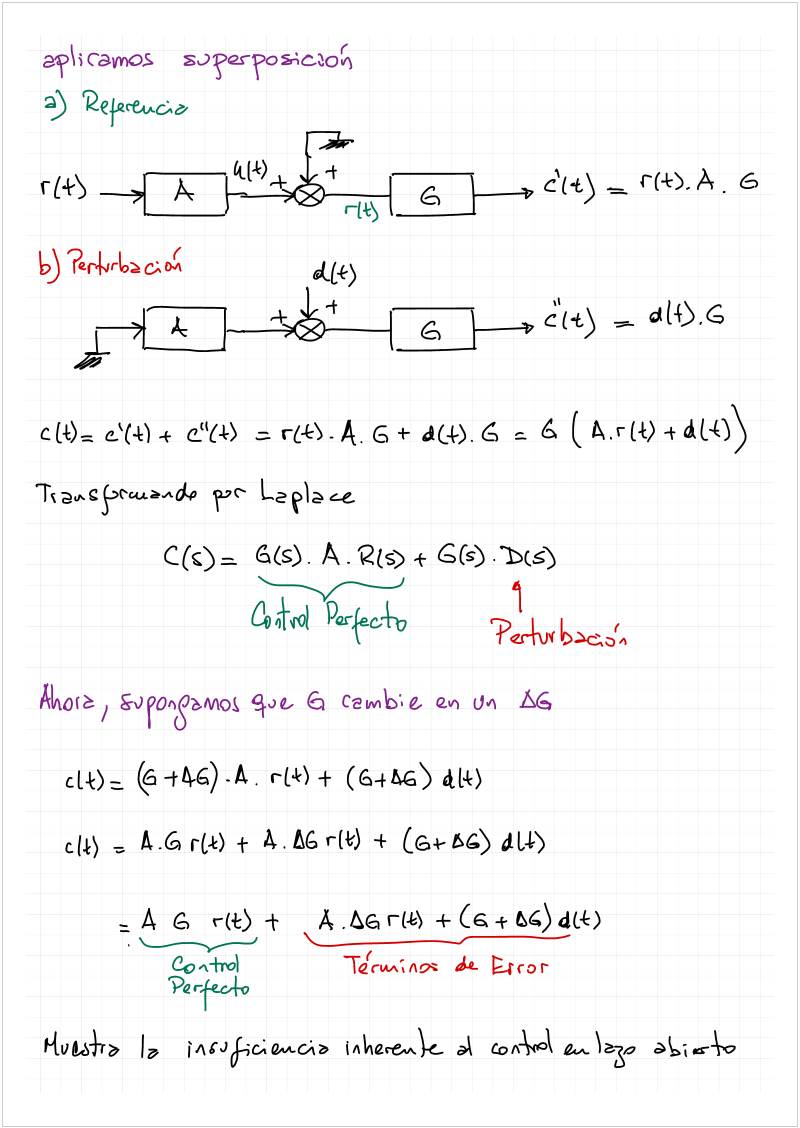 aplicamos superposición
a) Referencia
r(t) A u(t) + + r(t) G c'(t) = r(t). A . G
b) Perturbación
d(t)
A + + G c''(t) = d(t).G
c(t) = c'(t) + c''(t) = r(t). A. G + d(t). G = G ( A.r(t) + d(t))
Transformando por Laplace
C(s) = G(s). A. R(s) + G(s). D(s)
Control Perfecto
Perturbación
Ahora, supongamos que G cambie en un ΔG
c(t) = (G+ΔG).A. r(t) + (G+ΔG) d(t)
c(t) = A.G r(t) + A. ΔG r(t) + (G+ΔG) d(t)
= A G r(t) + A.ΔG r(t) + (G + ΔG) d(t)
Control Perfecto
Términos de Error
Muestra la insuficiencia inherente al control en lazo abierto